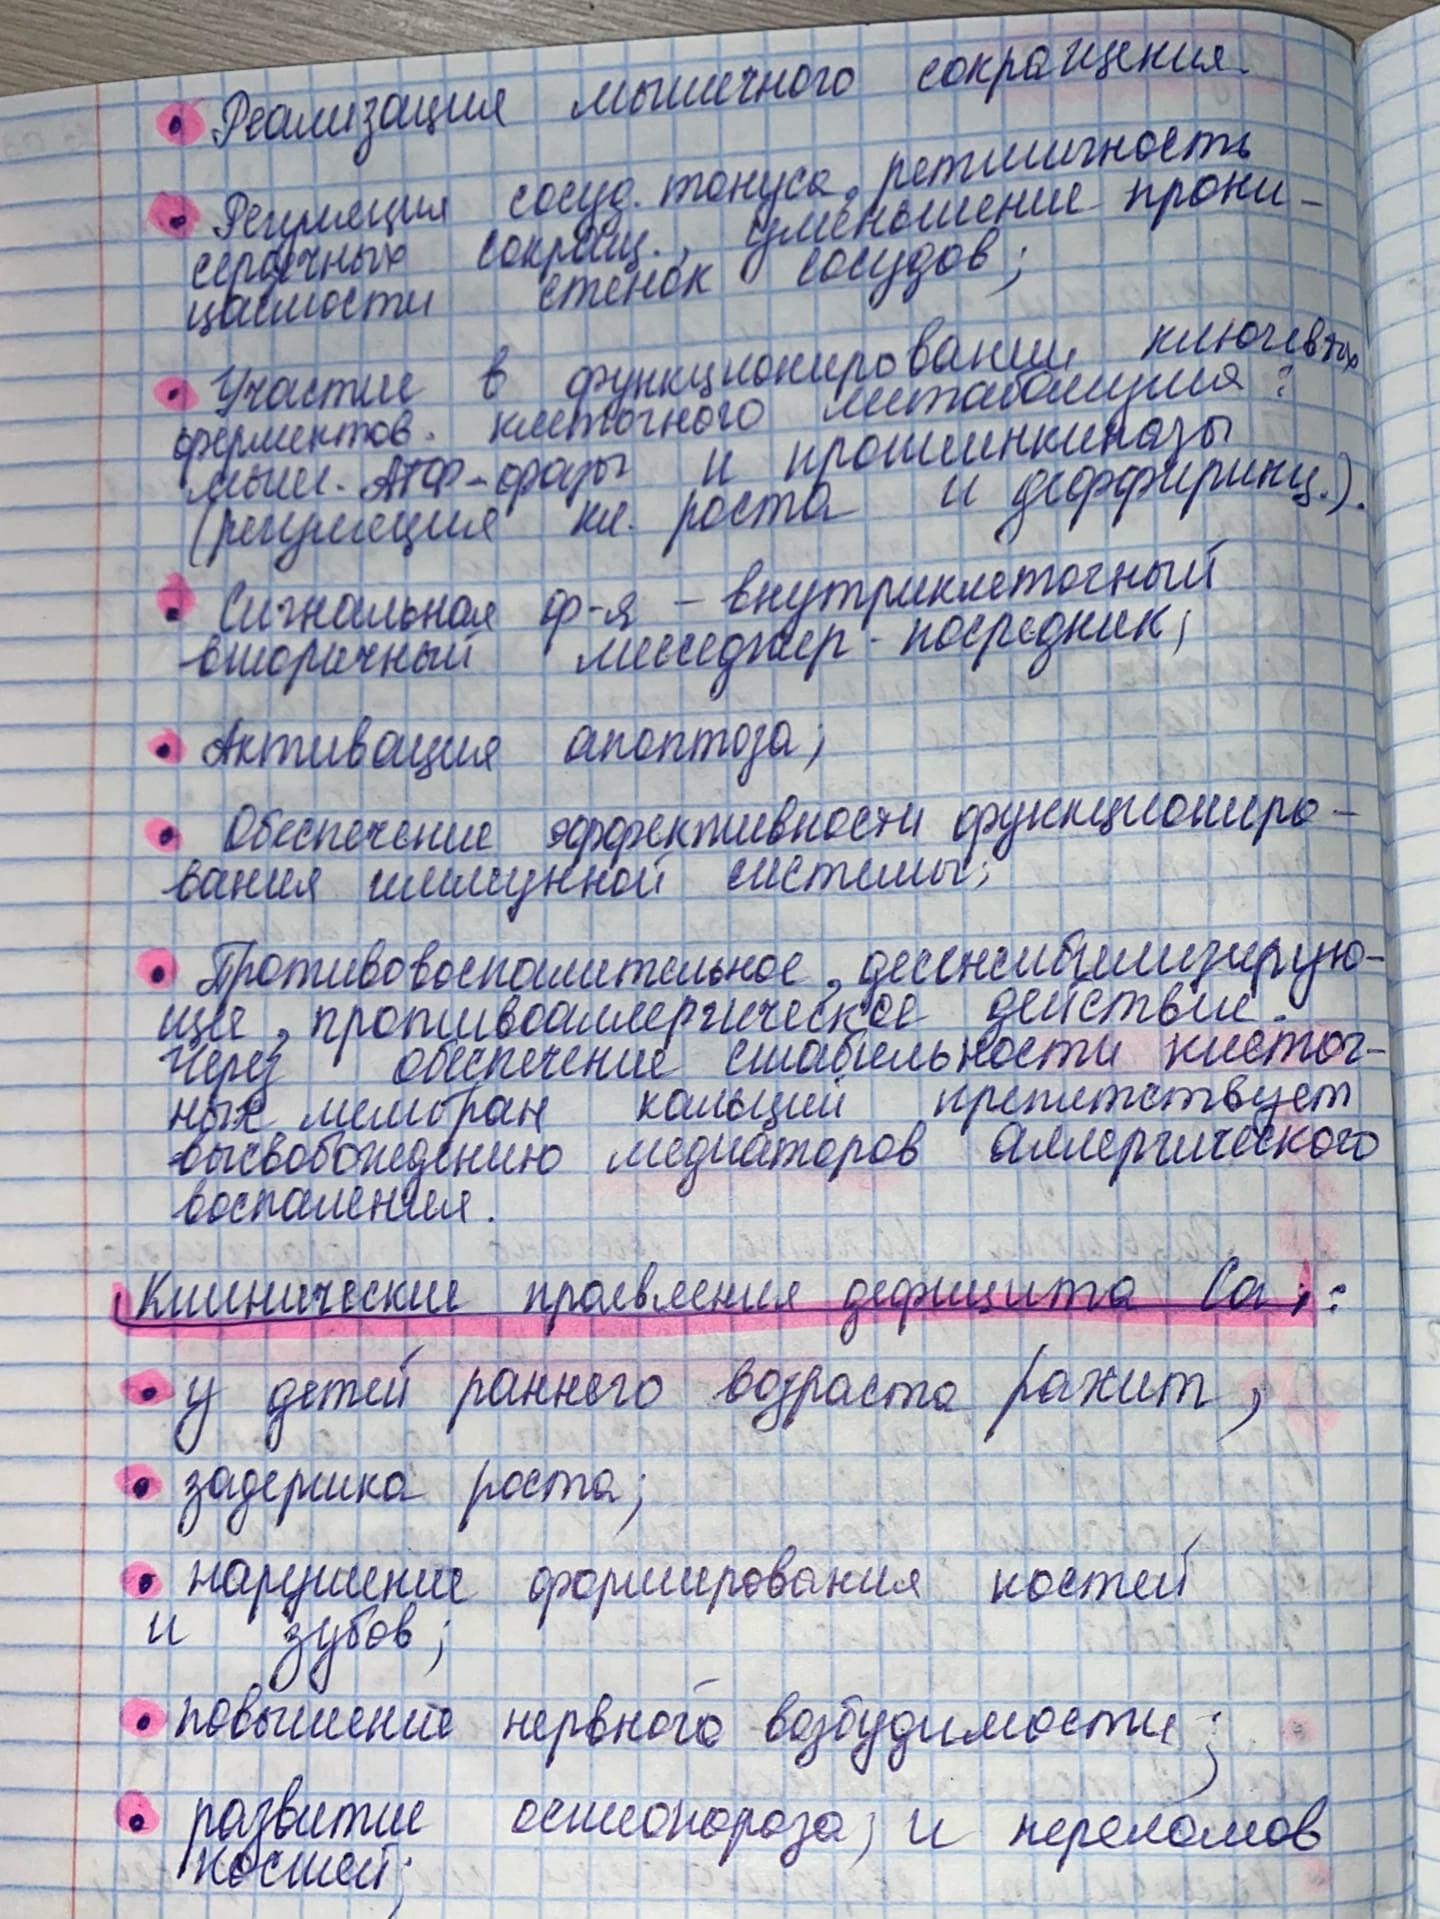 • Реализация мышечного сокращения.
• Регуляция сосуд. тонуса, ретмичность
сердечных сокращ., уменьшение прони-
цаемости стенок сосудов;
• Участие в функционировании ключевых
ферментов. клеточного метаболизма:
мыш. АТФ-фазы и протеинкиназы
(регуляция кл. роста и дефферинц.).
• Сигнальная ф-я - внутриклеточный
вторичный месседжер - посредник;
• Активация апоптоза;
• Обеспечение эффективности функциониро-
вания иммунной системы;
• Противовоспалительное, десенсибилизирую-
щее, противоаллергическое действие.
Через обеспечение стабильности клеточ-
ных мембран кальций препятствует
высвобождению медиаторов аллергического
воспаления.
Клинические проявления дефицита Ca;:
• у детей раннего возраста рахит,
• задержка роста;
• нарушение формирования костей
и зубов;
• повышение нервного возбудимости;
• развитие остеопороза; и переломов
костей;